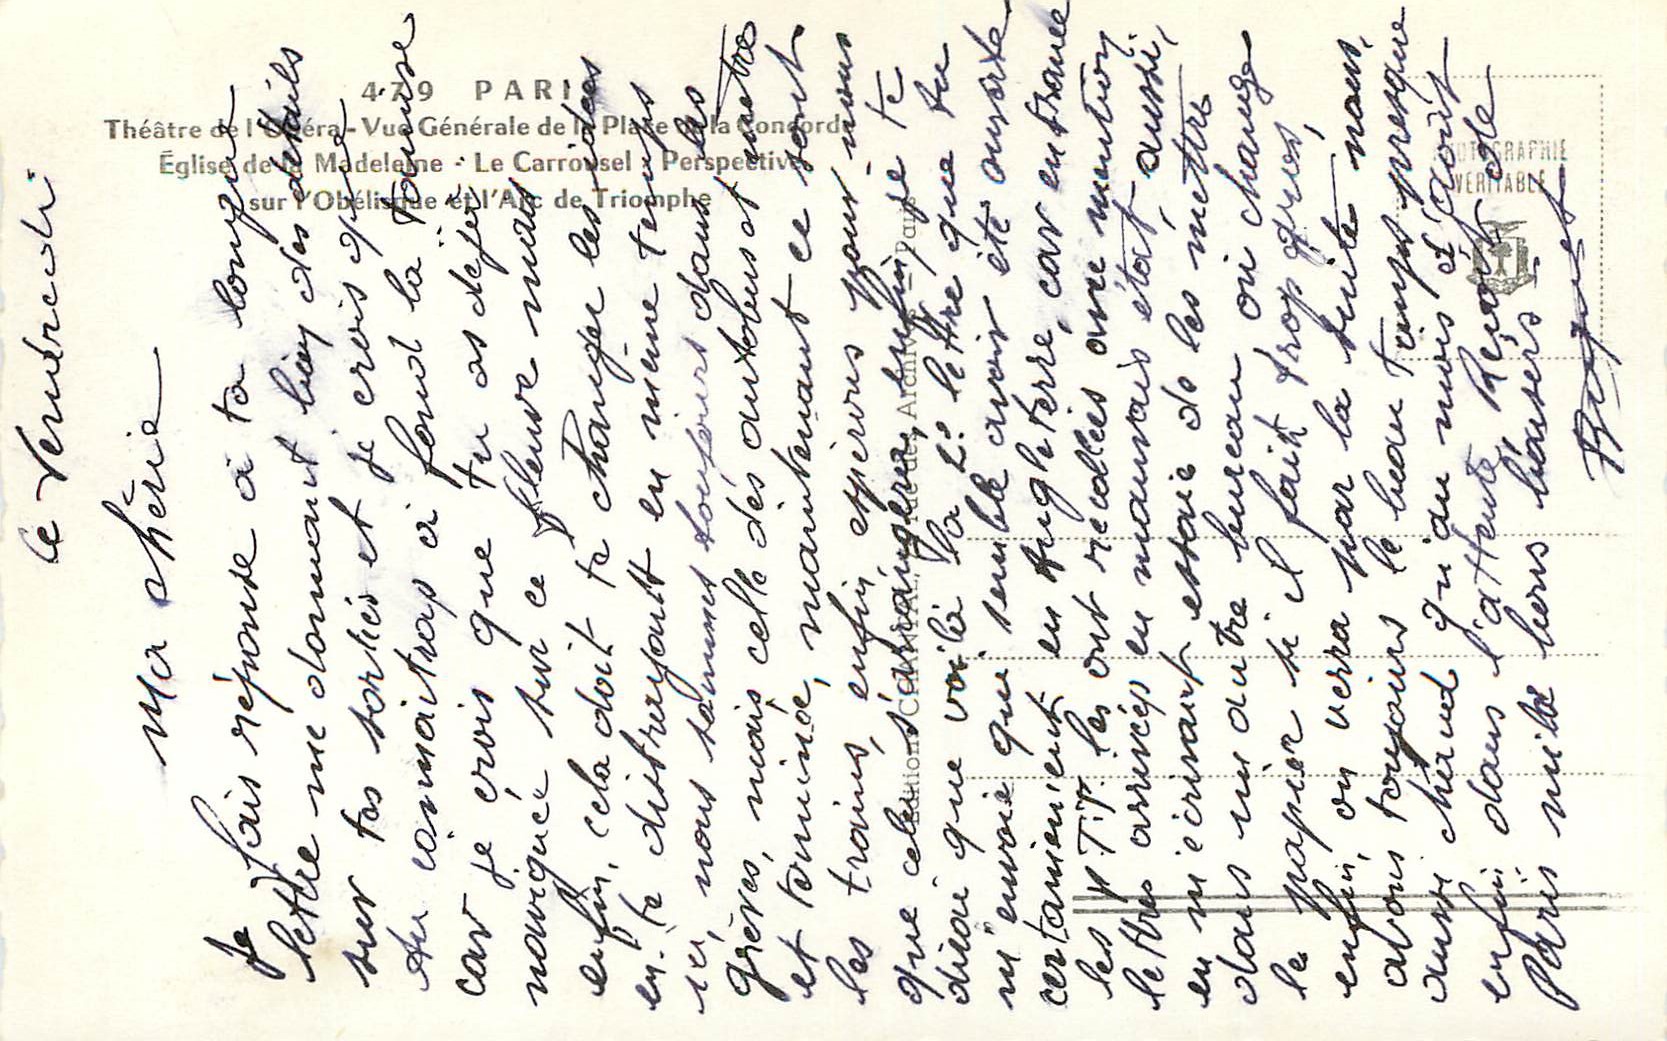 479 PARI
Théâtre de l'Opéra - Vue Générale de la Place de la Concorde
Église de la Madeleine - Le Carrousel - Perspective
sur l'Obélisque et l'Arc de Triomphe
PHOTOGRAPHIE
VÉRITABLE
Éditions CHANTAL, Rue des Archives - Paris
Ce Vendredi
Ma chérie
Je fais réponse à ta longue
lettre me donnant bien des détails
sur tes sorties et je crois que
tu connaîtras à fond la
car je crois que tu as déjà
navigué sur ce fleuve mais
enfin, cela doit te changer les idées
en te distrayant en même temps
ici, nous sommes toujours dans les
grèves, mais celle des autobus et métro
est terminée, maintenant ce sont
les trains, enfin, espérons pour nous
que cela s'arrangera, enfin je te
dirai que voilà la 2e lettre que tu
m'envoie qui semble avoir été ouverte
certainement en Angleterre, car en France
les P.T.T. les ont recollées avec mention
lettres arrivées en mauvais état, aussi,
en m'écrivant essaie de les mettre
dans un autre bureau ou change
le papier si il fait trop gros,
enfin, on verra par la suite nous,
avons toujours le beau temps presque
aussi chaud qu'au mois d'août
enfin dans l'attente Reçois de
Paris mille bons baisers